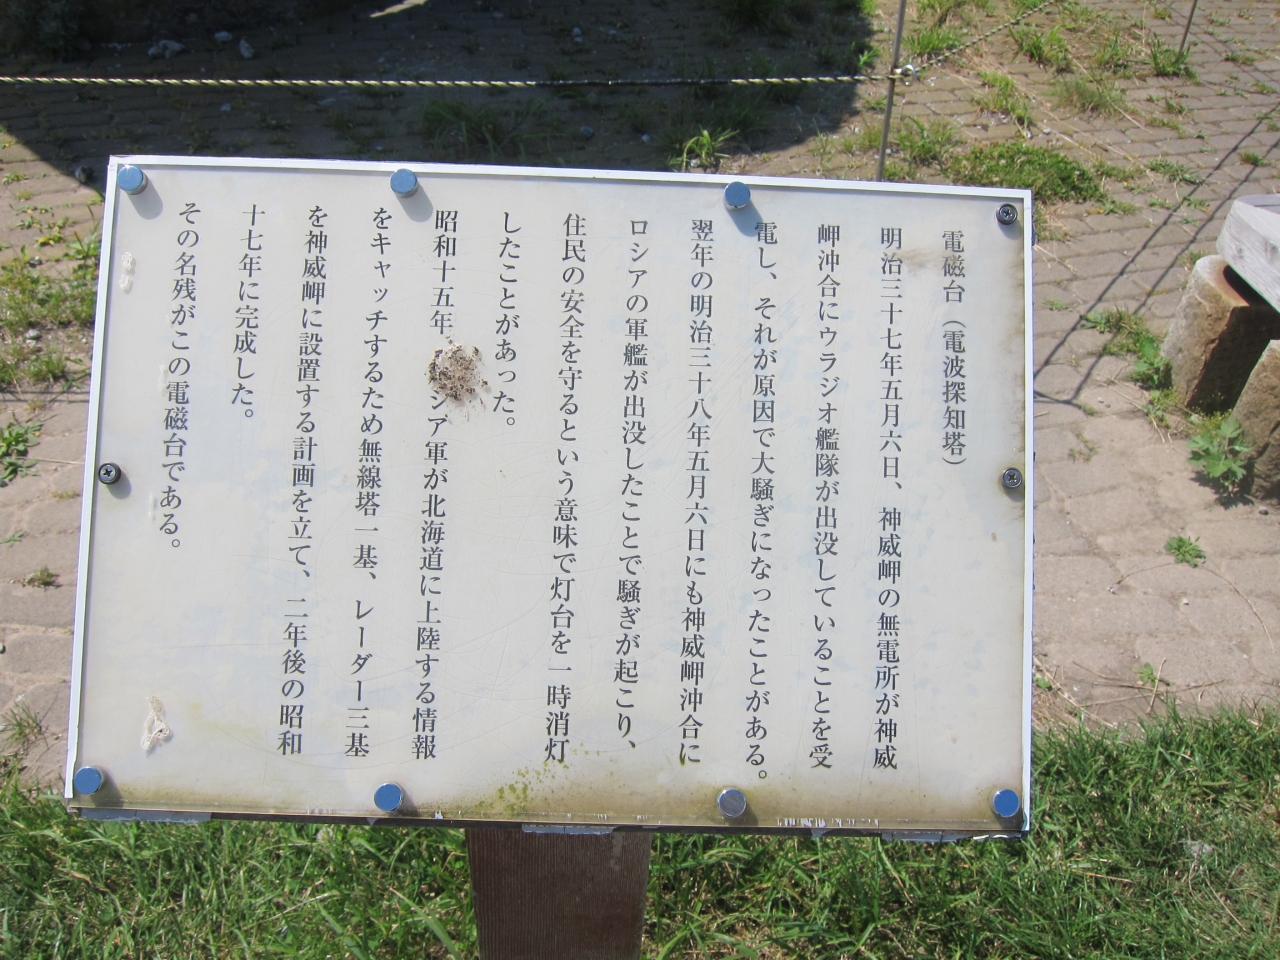 電磁台（電波探知塔）
明治三十七年五月六日、神威岬の無電所が神威
岬沖合にウラジオ艦隊が出没していることを受
電し、それが原因で大騒ぎになったことがある。
翌年の明治三十八年五月六日にも神威岬沖合に
ロシアの軍艦が出没したことで騒ぎが起こり、
住民の安全を守るという意味で灯台を一時消灯
したことがあった。
昭和十五年 シア軍が北海道に上陸する情報
をキャッチするため無線塔一基、レーダー三基
を神威岬に設置する計画を立て、二年後の昭和
十七年に完成した。
その名残がこの電磁台である。